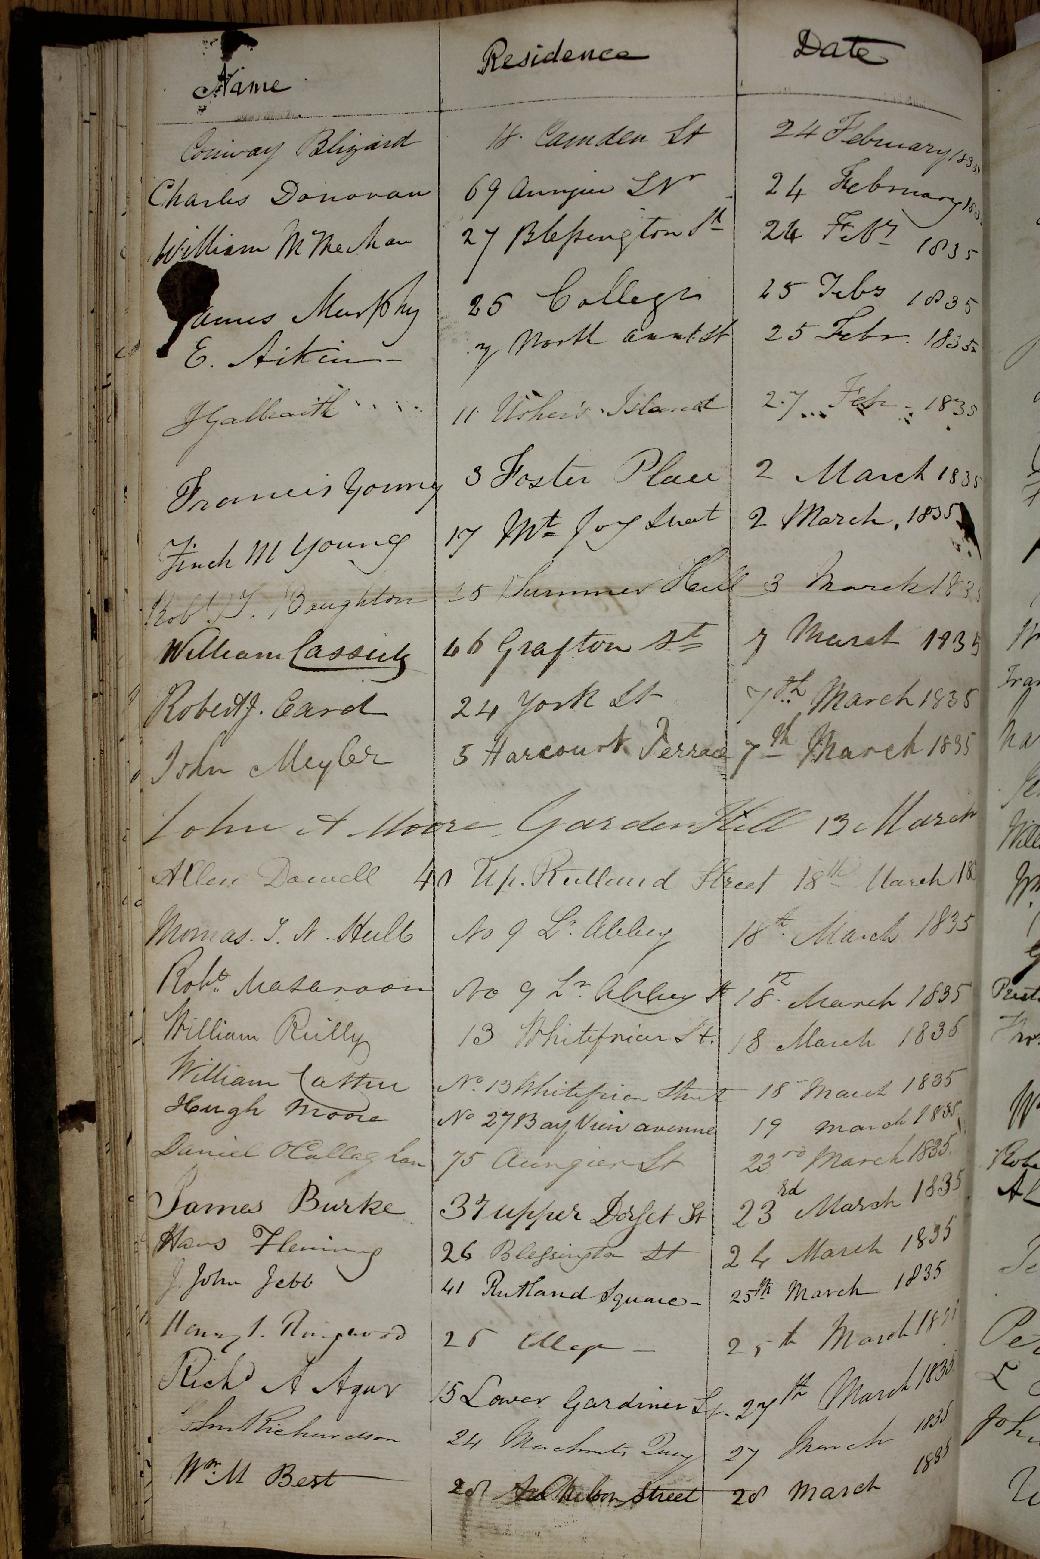 Name Residence Date
Conway Blizard 18 Camden St 24 February 1835
Charles Donovan 69 Aungier St 24 February 183
William McMechan 27 Blessington St 24 Feby 1835
James Murphy 25 College 25 Feby 1835
E. Aitkin 7 North Annst 25 Febr 1835
J Galbraith 11 Usher's Island 27 Feb 1835
Francis Young 3 Foster Place 2 March 1835
Finch M Young 17 Mt Joy 2 March, 1835
Robt J. Boughton 25 Summer Hill 3 March 1835
William Cassidy 46 Grafton St 7 March 1835
Robert J. Card 24 York St 7th March 1835
John Meyler 5 Harcourt Terrace 7th March 1835
John A Moore Garden Hill 13 March
Allen Dowell 40 Up. Rutland Street 18th March 18
Thomas J. N. No 9 Lr. Abbey 18th March 1835
Robt. No 9 Lr. Abbey St 18th March 1835
William Reilly 13 Whitefriar St. 18 March 1835
William No 13 Whitefriar Street 18 March 1835
Hugh Moore No 27 Bay View avenue 19 March 1835
Daniel O'Callaghan 75 Aungier St 23rd March 1835
James Burke 37 upper Dorset St 23rd March 1835
Hans Fleming 26 Blessington St 24 March 1835
J John Jebb 41 Rutland Square 25th March 1835
Henry Ringwood 25 College 25th March 183
Richd A Agar 15 Lower Gardiner St 27th March 1835
Richardson 24 Merchants Quay 27 March 1835
Wm. M Best 28 Street 28 March 1835